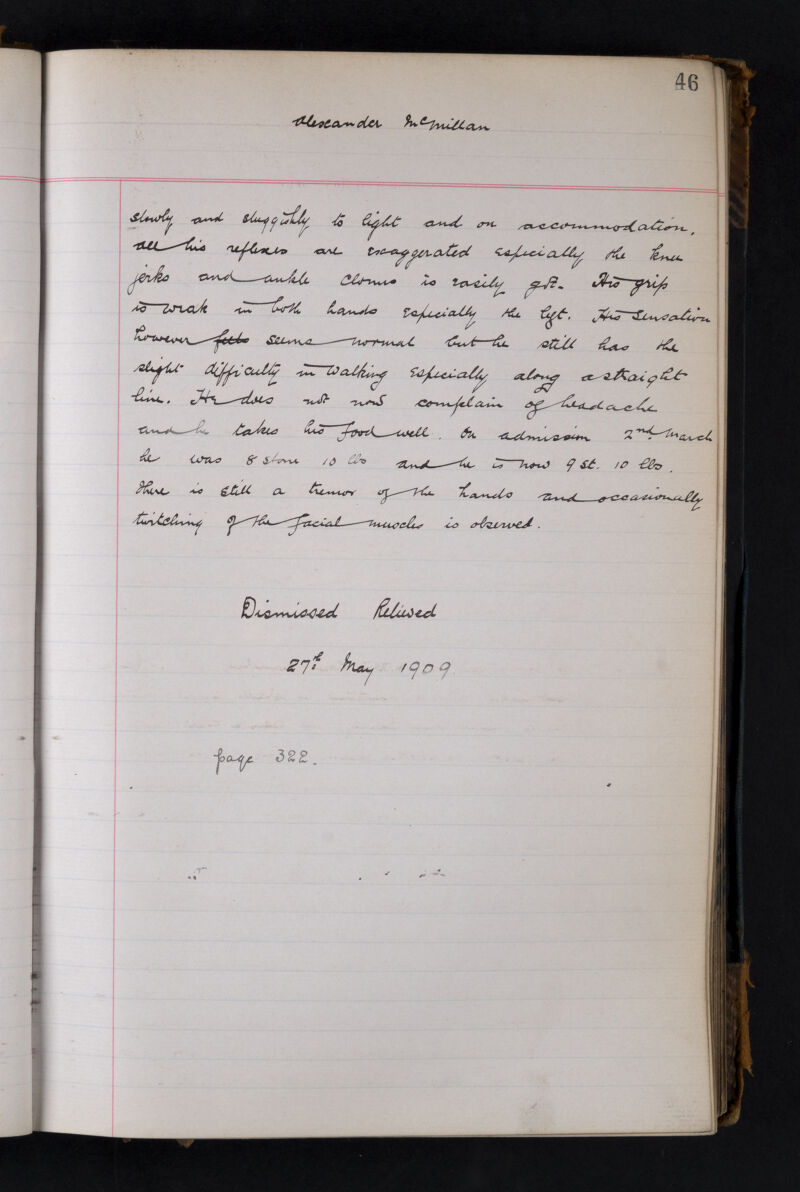 46
Alexander McMillan
slowly and sluggishly to light and on accommodation.
All his reflexes are exaggerated especially the knee
jerks and ankle clonus is easily got. His grip
is weak in both hands especially the left. His sensation
however feels seems normal but he still has the
slight difficulty in walking especially along a straight
line. He does not now complain of headache
and he takes his food well. On admission 2nd March
he was 8 stone 10 lbs and he is now 9 st. 10 lbs.
There is still a tremor of the hands and occasionally
twitching of the facial muscles is observed.
Dismissed Relieved
27th May 1909
page 322.